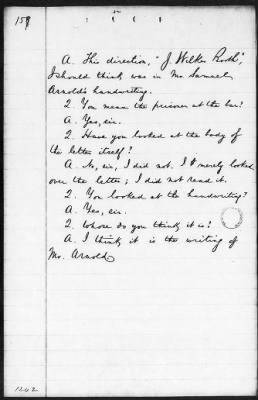 158
A. This direction, "J. Wilkes Booth",
I should think was in Mr. Samuel
Arnold's handwriting.
Q. You mean the prisoner at the bar?
A. Yes, sir.
Q. Have you looked at the body of
the letter itself?
A. No, sir, I did not. I merely looked
over the letter; I did not read it.
Q. You looked at the handwriting?
A. Yes, sir.
Q. Whose do you think it is?
A. I think it is the writing of
Mr. Arnold.
1262